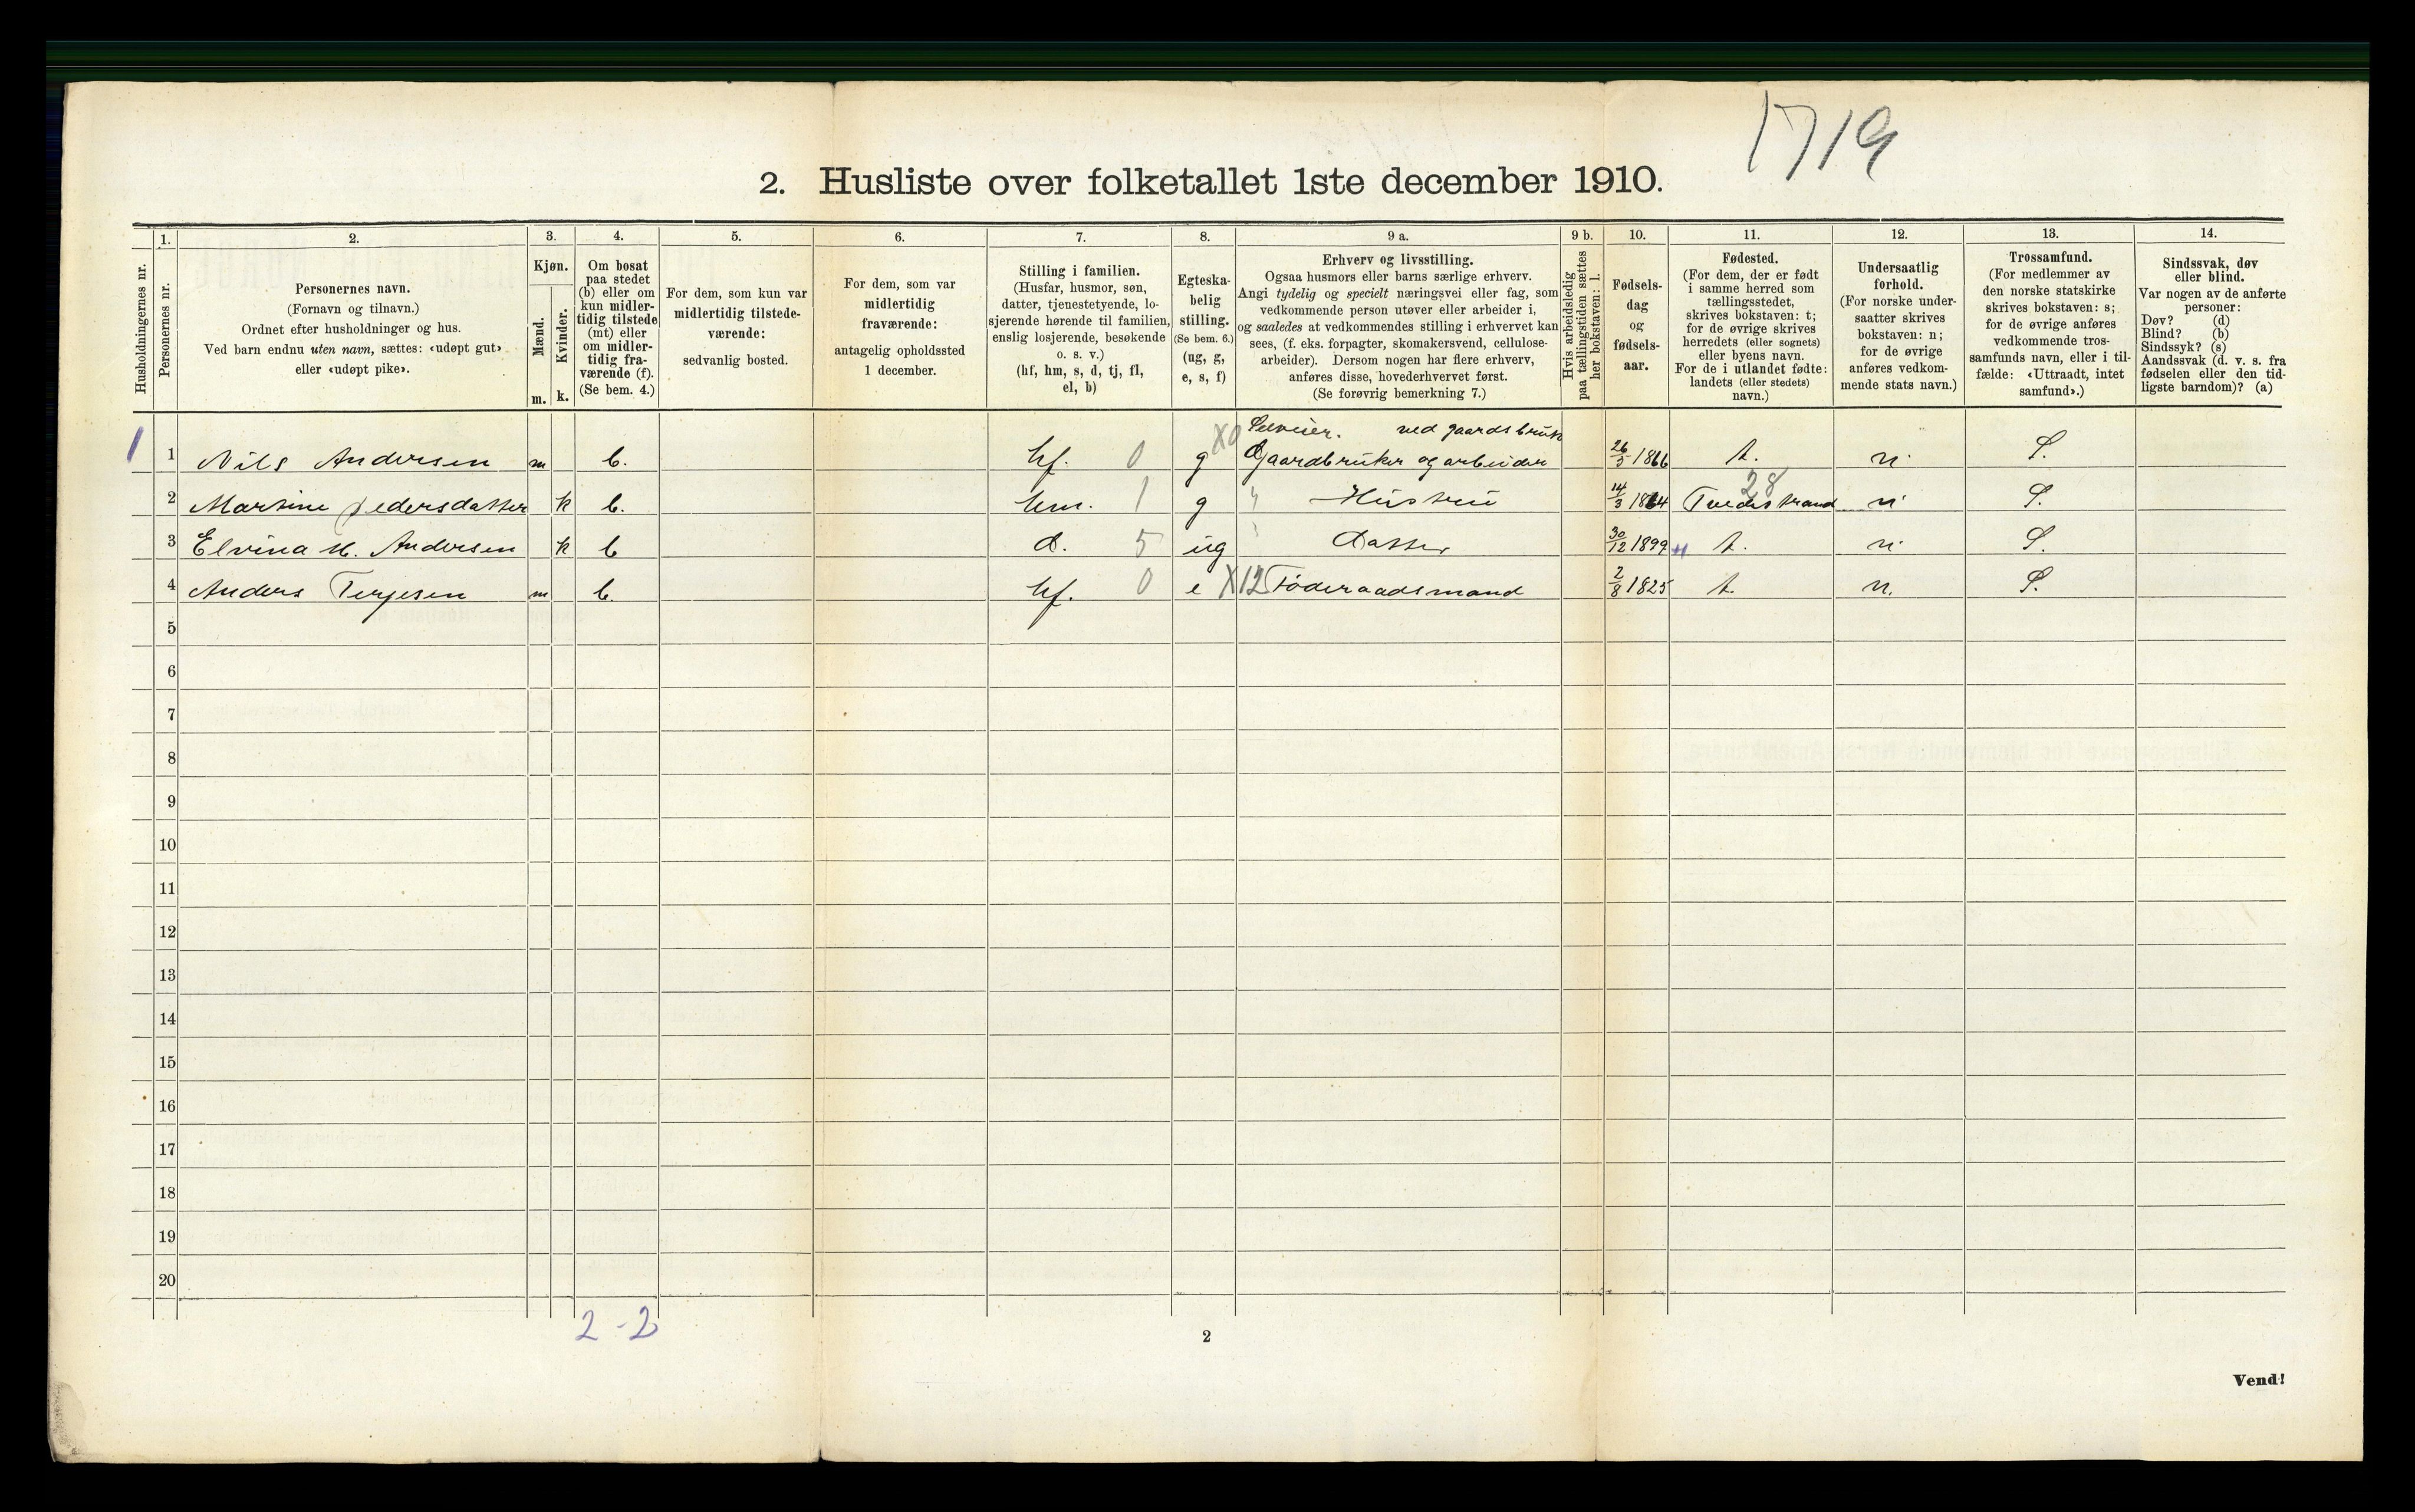 1719
2. Husliste over folketallet 1ste december 1910.
Husholdningernes nr.
1.
Personernes nr.
2.
Personernes navn.
(Fornavn og tilnavn.)
Ordnet efter husholdninger og hus.
Ved barn endnu uten navn, sættes: «udøpt gut»
eller «udøpt pike».
3.
Kjøn.
Mænd.
m.
Kvinder.
k.
4.
Om bosat
paa stedet
(b) eller om
kun midler-
tidig tilstede
(mt) eller
om midler-
tidig fra-
værende (f).
(Se bem. 4.)
5.
For dem, som kun var
midlertidig tilstede-
værende:
sedvanlig bosted.
6.
For dem, som var
midlertidig
fraværende:
antagelig opholdssted
1 december.
7.
Stilling i familien.
(Husfar, husmor, søn,
datter, tjenestetyende, lo-
sjerende hørende til familien,
enslig losjerende, besøkende
o. s. v.)
(hf, hm, s, d, tj, fl,
el, b)
8.
Egteska-
belig
stilling.
(Se bem. 6.)
(ug, g,
e, s, f)
9 a.
Erhverv og livsstilling.
Ogsaa husmors eller barns særlige erhverv.
Angi tydelig og specielt næringsvei eller fag, som
vedkommende person utøver eller arbeider i,
og saaledes at vedkommendes stilling i erhvervet kan
sees, (f. eks. forpagter, skomakersvend, cellulose-
arbeider). Dersom nogen har flere erhverv,
anføres disse, hovederhvervet først.
(Se forøvrig bemerkning 7.)
9 b.
Hvis arbeidsledig
paa tællingstiden sættes
her bokstaven: l.
10.
Fødsels-
dag
og
fødsels-
aar.
11.
Fødested.
(For dem, der er født
i samme herred som
tællingsstedet,
skrives bokstaven: t;
for de øvrige skrives
herredets (eller sognets)
eller byens navn.
For de i utlandet fødte:
landets (eller stedets)
navn.)
12.
Undersaatlig
forhold.
(For norske under-
saatter skrives
bokstaven: n;
for de øvrige
anføres vedkom-
mende stats navn.)
13.
Trossamfund.
(For medlemmer av
den norske statskirke
skrives bokstaven: s;
for de øvrige anføres
vedkommende tros-
samfunds navn, eller i til-
fælde: «Uttraadt, intet
samfund».)
14.
Sindssvak, døv
eller blind.
Var nogen av de anførte
personer:
Døv? (d)
Blind? (b)
Sindssyk? (s)
Aandssvak (d. v. s. fra
fødselen eller den tid-
ligste barndom)? (a)
X0 Selveier. ved gaardsbruk
1 1 Nils Andersen m b. hf. 0 g Gaardbruker og arbeider 26/5 1866 t. n. S.
28
2 Martine Pedersdatter k b. hm. 1 g " Hustru 14/3 1864 Tvedestrand n S.
3 Elvina M. Andersen k b d. 5 ug Datter 30/12 1899 t. n. S.
4 Anders Terjesen m b. hf. 0 e X12 Føderaadsmand 2/8 1825 t. n. S.
5
6
7
8
9
10
11
12
13
14
15
16
17
18
19
20
2 - 2
2
Vend!